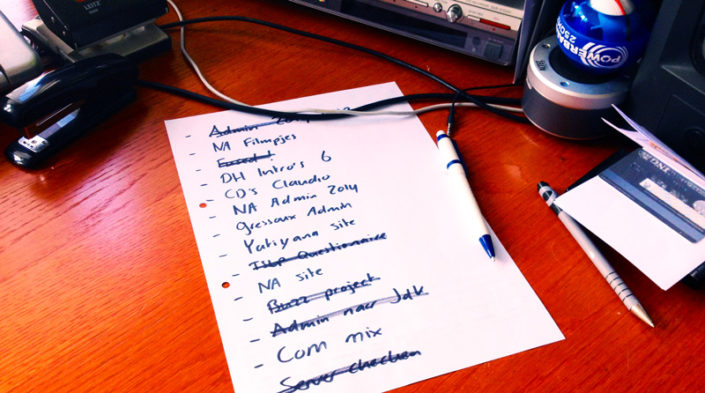 LEITZ
POWERBALL
250Hz
ING
- Admin
- NA Filmpjes
- 
- DH Intro's 6
- CD's Claudio
- NA Admin 2014
- Gressaux Admin
- Yatiyana site
- ISBP Questionnaire
- NA site
- Buzz project
- Admin naar Jdk
- Com mix
- Server checken